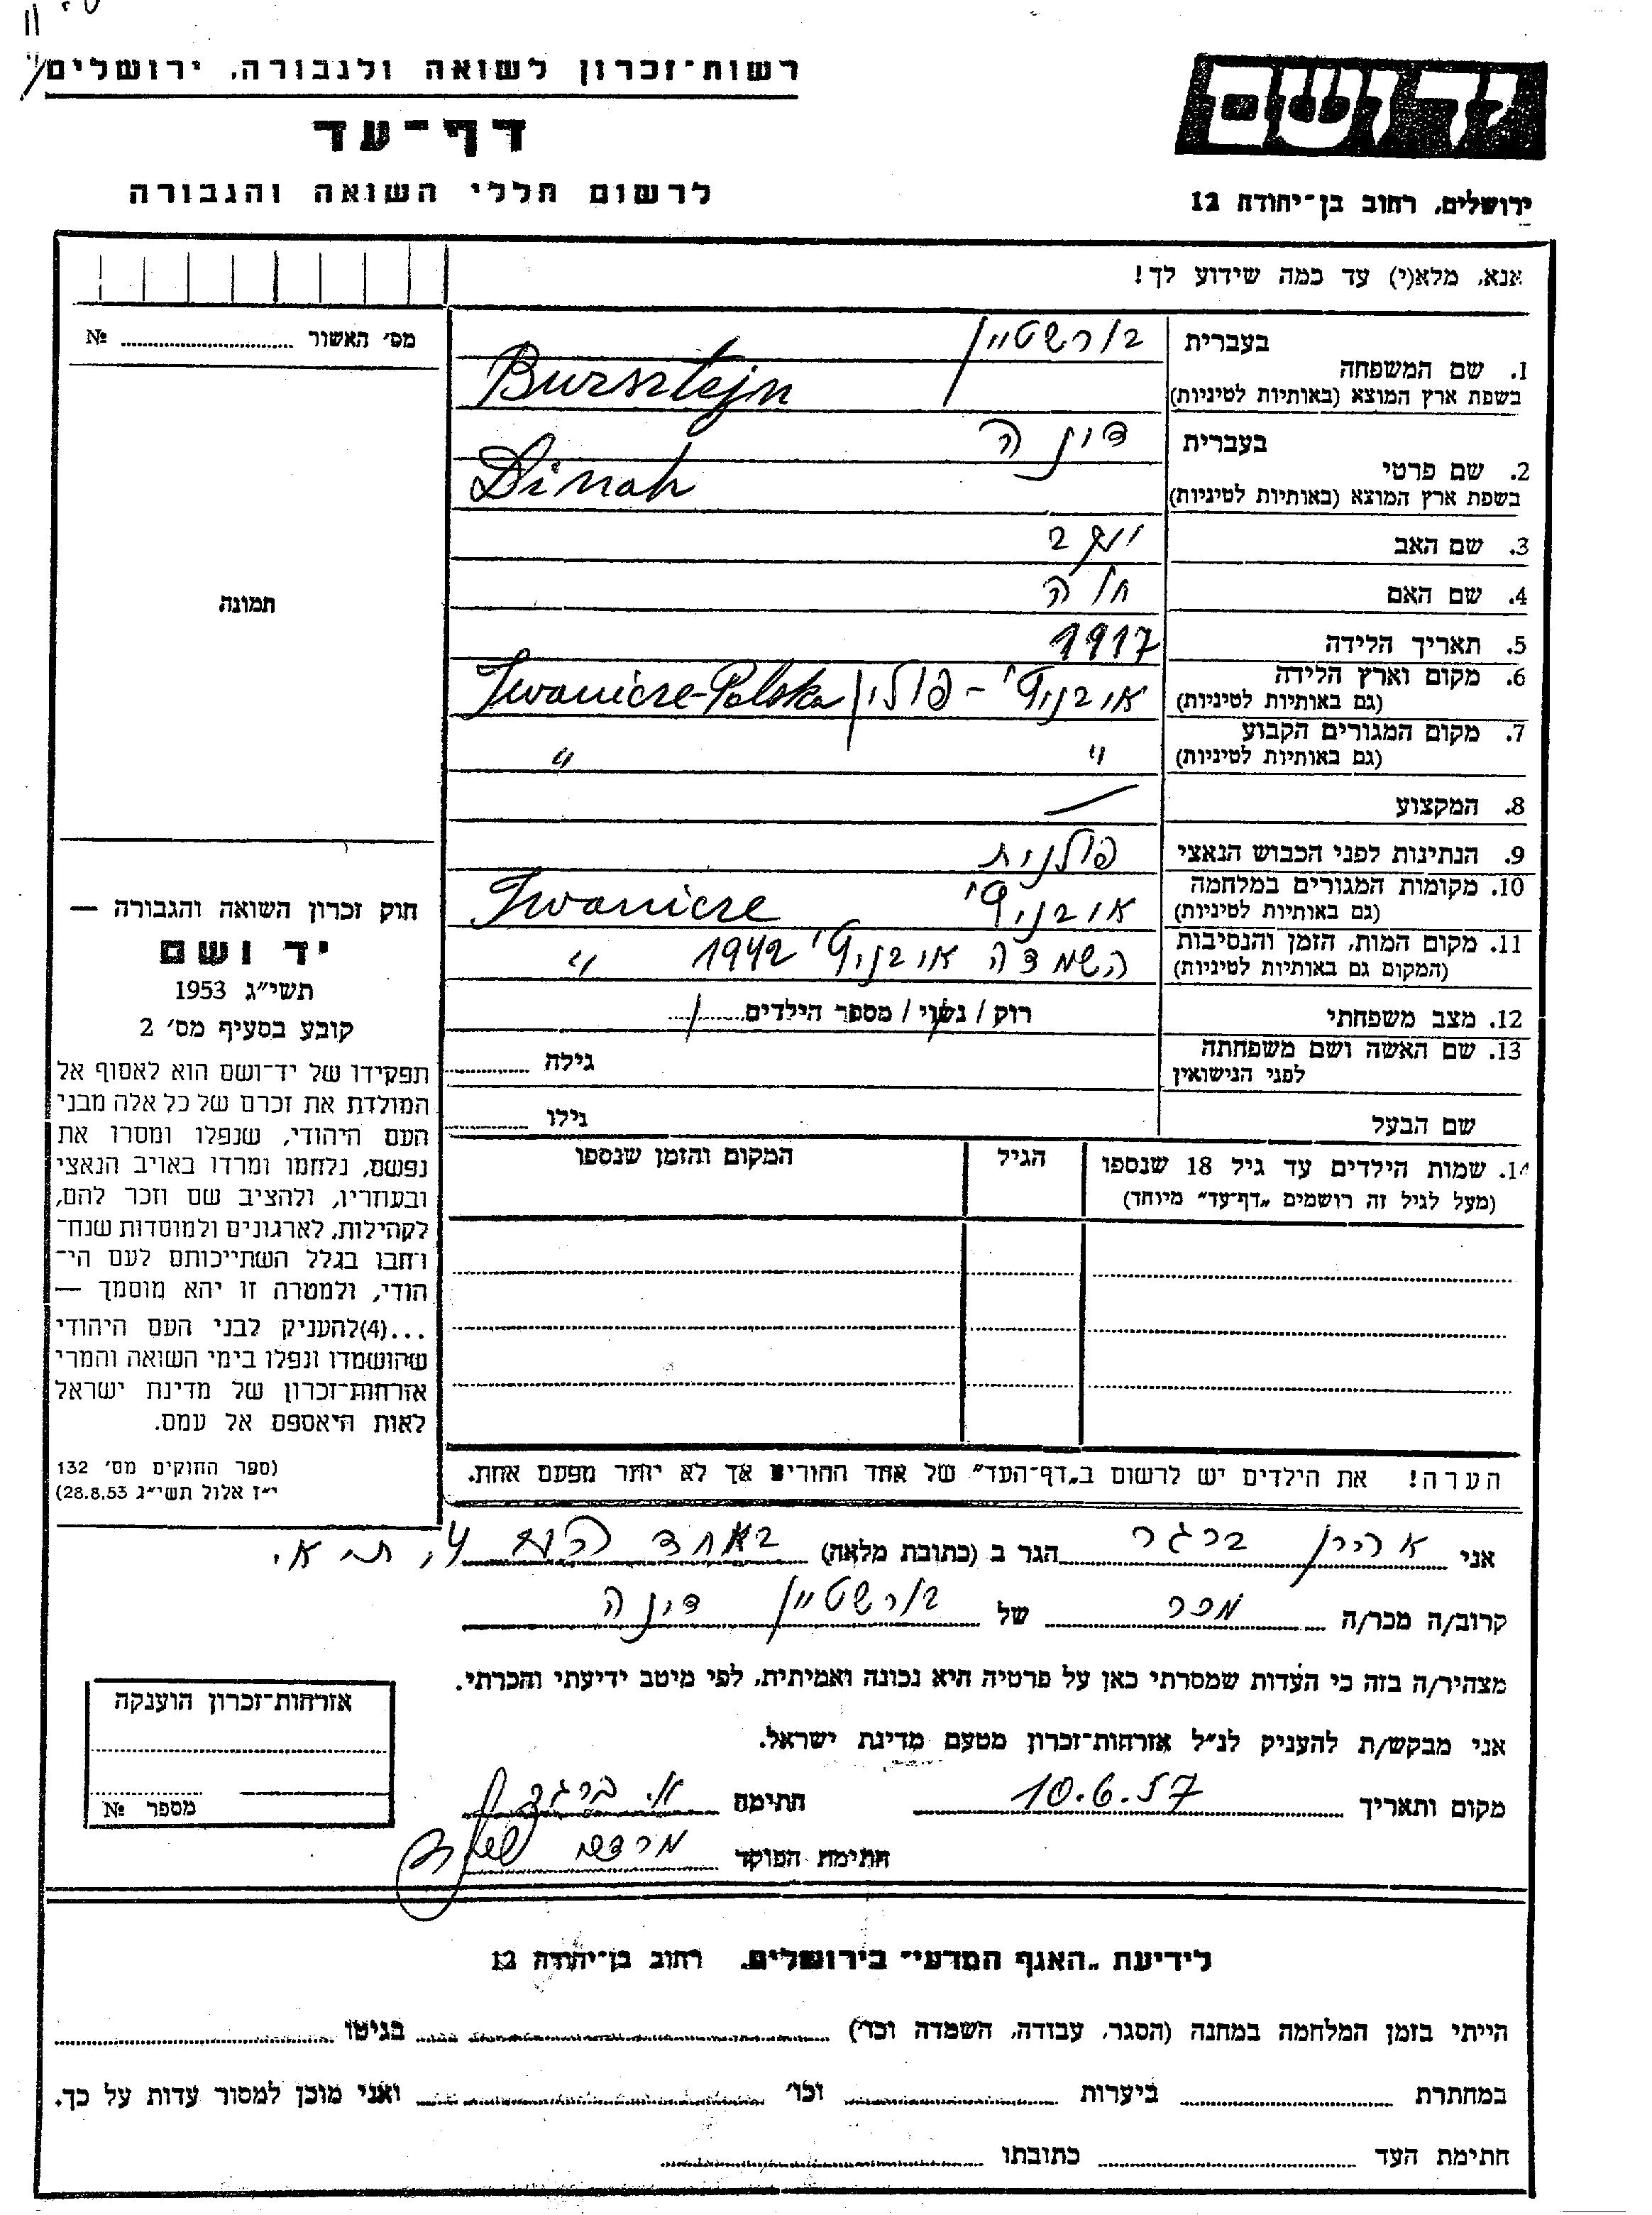 רשות־זכרון לשואה ולגבורה, ירושלים
דף־עד
לרשום חללי השואה והגבורה
יד ושם
ירושלים, רחוב בן־יהודה 12
אנא, מלא(י) עד כמה שידוע לך!
מס׳ האשור № 
בעברית בורשטיין
1. שם המשפחה
בשפת ארץ המוצא (באותיות לטיניות) Bursztejn
בעברית דינה
2. שם פרטי
בשפת ארץ המוצא (באותיות לטיניות) Dinah
3. שם האב יעקב
4. שם האם חיה
5. תאריך הלידה 1917
6. מקום וארץ הלידה איבניץ׳ - פולין Iwanicze-Polska
(גם באותיות לטיניות)
7. מקום המגורים הקבוע " "
(גם באותיות לטיניות)
8. המקצוע —
9. הנתינות לפני הכבוש הנאצי פולנית
10. מקומות המגורים במלחמה איבניץ׳ Iwanicze
(גם באותיות לטיניות)
11. מקום המות, הזמן והנסיבות השמדה איבניץ׳ 1942 "
(המקום גם באותיות לטיניות)
12. מצב משפחתי רוק / נשוי / מספר הילדים
13. שם האשה ושם משפחתה גילה
לפני הנישואין
שם הבעל גילו
14. שמות הילדים עד גיל 18 שנספו הגיל המקום והזמן שנספו
(מעל לגיל זה רושמים „דף־עד" מיוחד)
הערה! את הילדים יש לרשום ב„דף־העד" של אחד ההורים אך לא יותר מפעם אחת.
תמונה
חוק זכרון השואה והגבורה —
יד ושם
תשי״ג 1953
קובע בסעיף מס׳ 2
תפקידו של יד־ושם הוא לאסוף אל
המולדת את זכרם של כל אלה מבני
העם היהודי, שנפלו ומסרו את
נפשם, נלחמו ומרדו באויב הנאצי
ובעוזריו, ולהציב שם וזכר להם,
לקהילות, לארגונים ולמוסדות שנח־
רחבו בגלל השתייכותם לעם הי־
הודי, ולמטרה זו יהא מוסמך —
...(4)להעניק לבני העם היהודי
שהושמדו ונפלו בימי השואה והמרי
אזרחות־זכרון של מדינת ישראל
לאות היאספם אל עמם.
(ספר החוקים מס׳ 132
י״ז אלול תשי״ג 28.8.53)
אני אהרן ברגר הגר ב (כתובת מלאה) באחד העם 4, ת״א.
קרוב/ה מכר/ה מכר של בורשטיין דינה
מצהיר/ה בזה כי העדות שמסרתי כאן על פרטיה היא נכונה ואמיתית, לפי מיטב ידיעתי והכרתי.
אני מבקש/ת להעניק לנ״ל אזרחות־זכרון מטעם מדינת ישראל.
מקום ותאריך 10.6.57 חתימה א. ברגר
חתימת הפוקד מרדכי
אזרחות־זכרון הוענקה
מספר №
לידיעת „האגף המדעי" בירושלים, רחוב בן־יהודה 12
הייתי בזמן המלחמה במחנה (הסגר, עבודה, השמדה וכו׳) בגיטו
במחתרת ביערות וכו׳ ואני מוכן למסור עדות על כך.
חתימת העד כתובתו